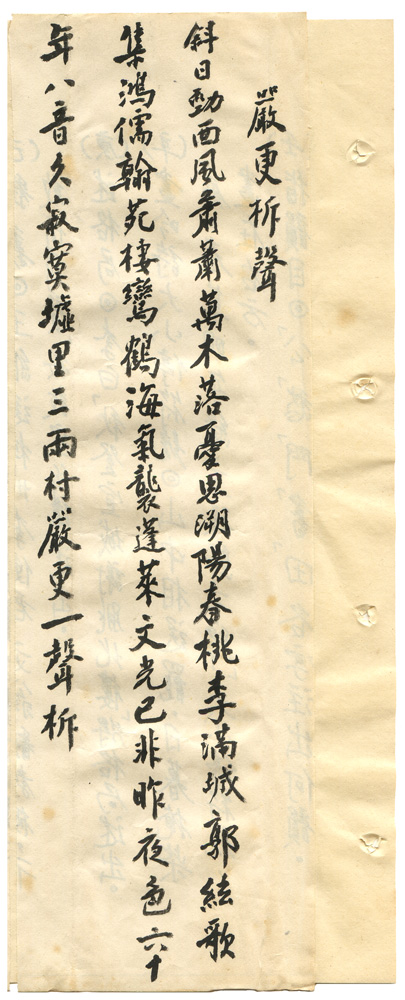 嚴更柝聲
斜日勁西風蕭蕭萬木落憂思溯陽春桃李滿城郭絃歌
集鴻儒翰苑棲鸞鶴海氣襲蓬萊文光已非昨夜色六十
年八音久寂寞墟里三兩村嚴更一聲柝